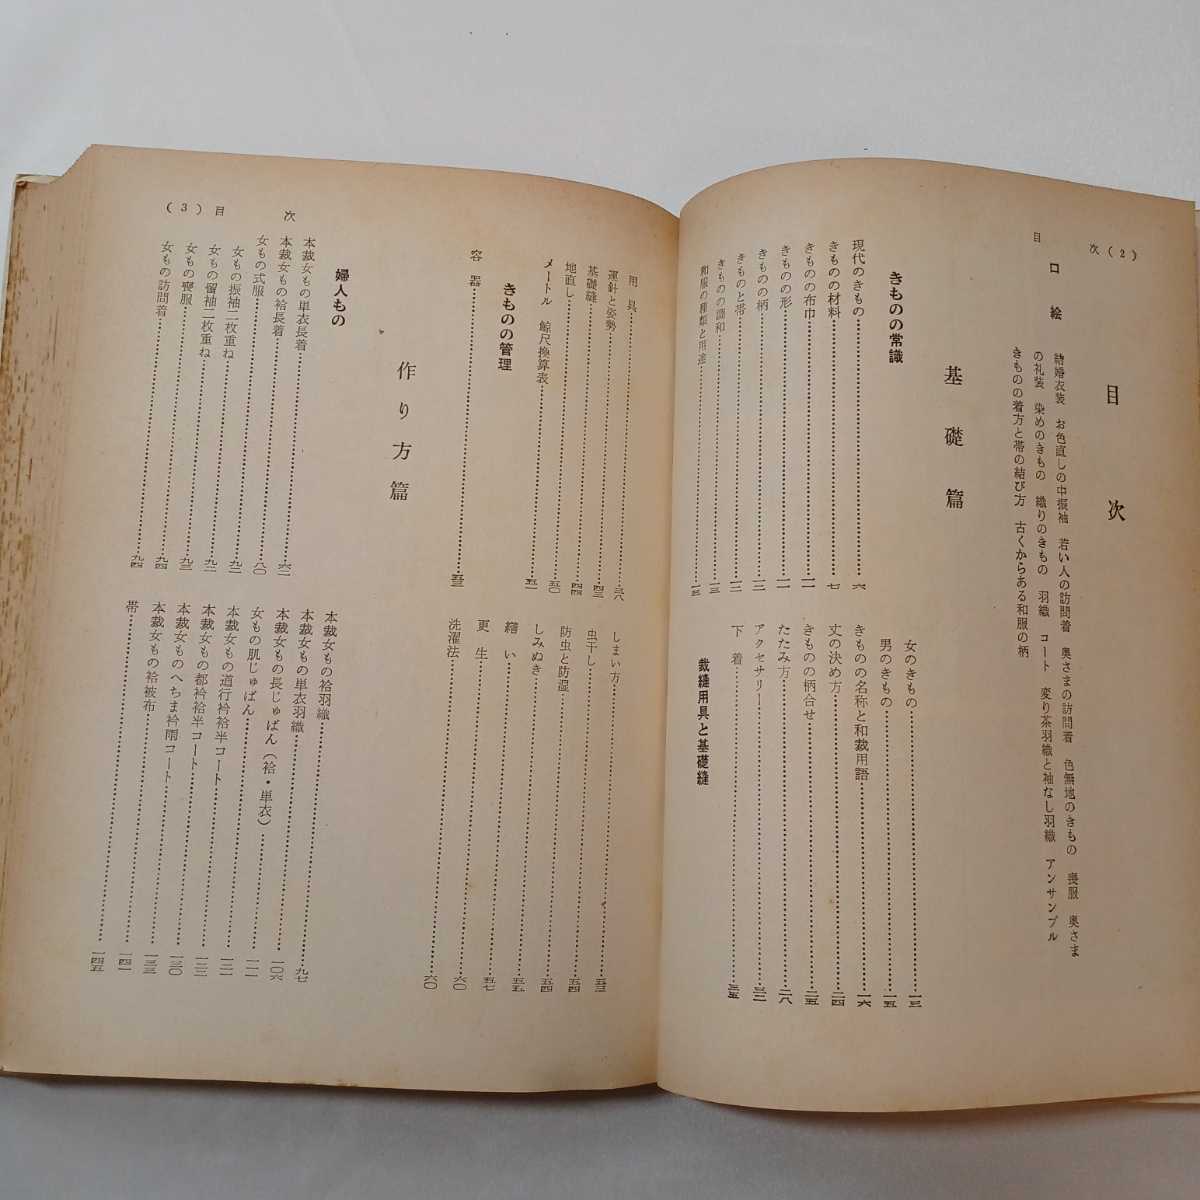 目　次 (2)
目　次
口　絵
結婚衣装　お色直しの中振袖　若い人の訪問着　奥さまの訪問着　色無地のきもの　喪服　奥さま
の礼装　染めのきもの　織りのきもの　羽織　コート　変り茶羽織と袖なし羽織　アンサンブル
きものの着方と帯の結び方　古くからある和服の柄
基礎篇
きものの常識
現代のきもの……六
きものの材料……七
きものの布巾……一一
きものの形……一一
きものの柄……一二
きものと帯……一二
きものの調和……一三
和服の種類と用途……一三
女のきもの……一三
男のきもの……一五
きものの名称と和裁用語……一六
丈の決め方……二四
きものの柄合せ……二五
たたみ方……二八
アクセサリー……三二
下着……三五
裁縫用具と基礎縫
用具……三八
運針と姿勢……四三
基礎縫……四四
地直し……五〇
メートル　鯨尺換算表……五二
きものの管理
容器……五三
しまい方……五三
虫干し……五四
防虫と防湿……五四
しみぬき……五五
繕い……五七
更生……六〇
洗濯法……六〇
(3) 目　次
作り方篇
婦人もの
本裁女もの単衣長着……六二
本裁女もの袷長着……八〇
女もの式服……九二
女もの振袖二枚重ね……九二
女もの留袖二枚重ね……九三
女もの喪服……九四
女もの訪問着……九四
本裁女もの袷羽織……九七
本裁女もの単衣羽織……一〇六
本裁女もの長じゅばん（袷・単衣）……一一一
女もの肌じゅばん……一二一
本裁女もの道行衿袷半コート……一二二
本裁女もの都衿袷半コート……一三〇
本裁女ものへちま衿雨コート……一三三
本裁女もの袷被布……一四一
帯……一四五